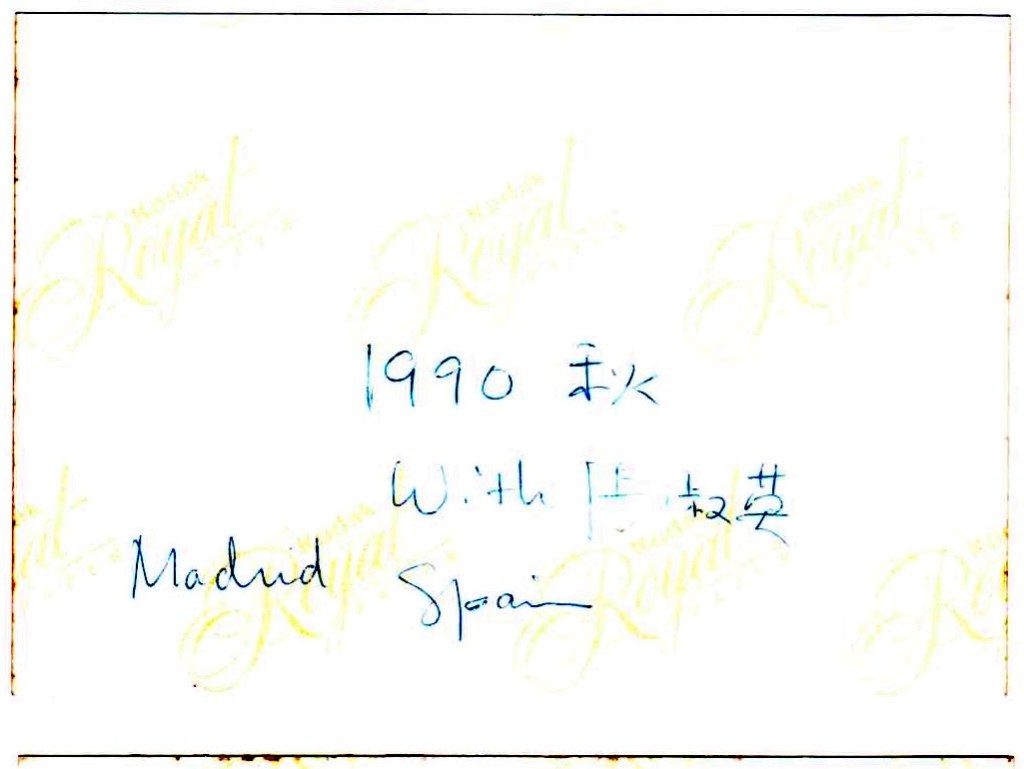 Kodak Kodak Kodak
Royal Royal Royal
1990 秋
With 叔英
Kodak Kodak Kodak
Royal Royal Royal
Madrid Spain